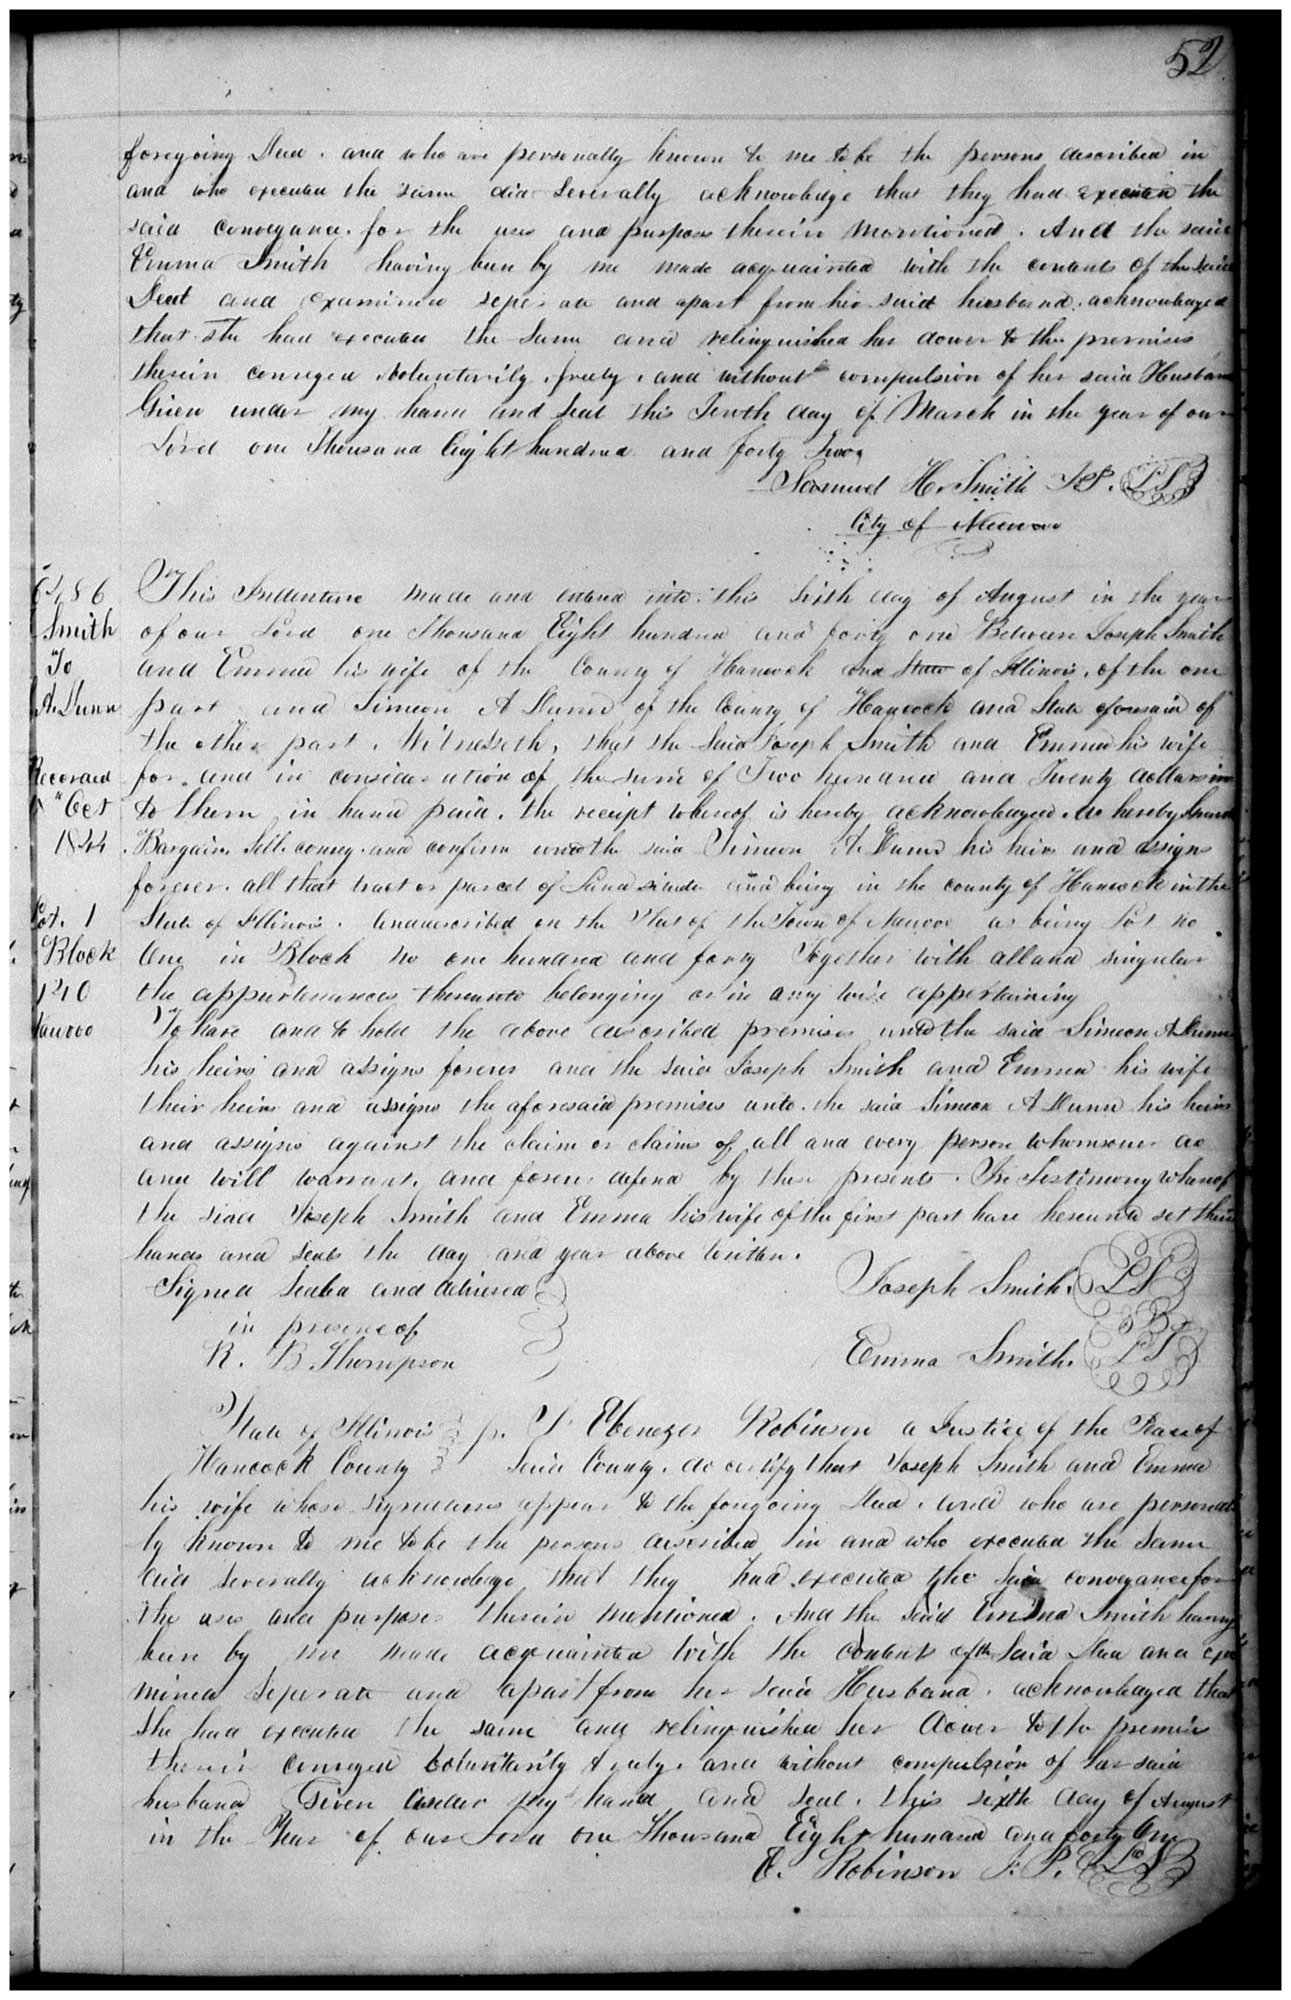 52
foregoing Deed. and who are personally known to me to be the persons described in
and who executed the same did severally acknowledge that they had executed the
said conveyance. for the uses and purposes therein mentioned. And the said
Emma Smith having been by me made acquainted with the contents of the said
Deed and examined seperate and apart from her said husband. acknowledged
that she had executed the same and relinquished her dower to the premises
therein conveyed voluntarily, freely, and without compulsion of her said Husband
Given under my hand and seal this Tenth day of March in the year of our
Lord one Thousand Eight hundred and forty Two
Samuel H. Smith J.P. LS
City of Nauvoo
Smith
To
A. Dunn
Recorded
Oct
1844
Lot. 1
Block
140
Nauvoo
This Indenture made and entered into this sixth day of August in the year
of our Lord one Thousand Eight hundred and forty one Between Joseph Smith
and Emma his wife of the County of Hancock and State of Illinois, of the one
part and Simeon A Dunn of the County of Hancock and State aforesaid of
the other part, Witnesseth, that the said Joseph Smith and Emma his wife
for and in consideration of the sum of Two hundred and Twenty dollars
to them in hand paid. the receipt whereof is hereby acknowledged. do hereby
Bargain Sell convey and confirm unto the said Simeon A Dunn his heirs and assigns
forever. all that tract or parcel of Land situate and being in the county of Hancock in the
State of Illinois. and described on the Plat of the Town of Nauvoo as being Lot no
One in Block no one hundred and forty Together with all and singular
the appurtenances thereunto belonging or in any wise appertaining
To have and to hold the above described premises unto the said Simeon A Dunn
his heirs and assigns forever and the said Joseph Smith and Emma his wife
their heirs and assigns the aforesaid premises unto the said Simeon A Dunn his heirs
and assigns against the claim or claims of all and every person whomsoever do
and will warrant and forever defend by these presents. In Testimony whereof
the said Joseph Smith and Emma his wife of the first part have hereunto set their
hands and seals the day and year above written.
Signed sealed and delivered Joseph Smith. LS
in presence of
R. B. Thompson Emma Smith. LS
State of Illinois I Ebenezer Robinson a Justice of the Peace of
Hancock County Said County. do certify that Joseph Smith and Emma
his wife whose signatures appear to the foregoing Deed. and who are personal
ly known to me to be the persons described in and who executed the same
did severally acknowledge that they had executed the said conveyance for
the uses and purposes therein mentioned. And the said Emma Smith having
been by me made acquainted with the content of the said Deed and exa
mined seperate and apart from her said Husband. acknowledged that
she had executed the same and relinquished her dower to the premises
therein conveyed voluntarily freely. and without compulsion of her said
husband Given under my hand and seal. this sixth day of August
in the Year of our Lord one Thousand Eight hundred and forty One
E. Robinson J. P. LS